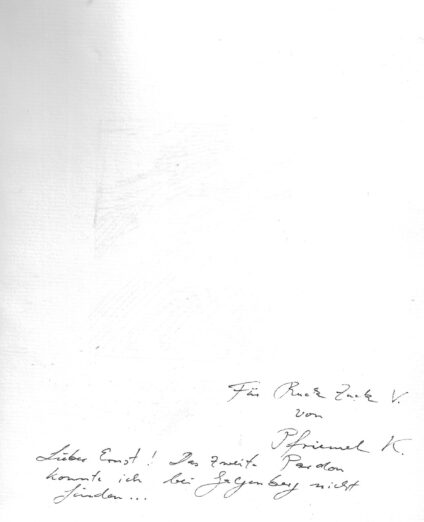 Für Ruck Zuck V.
von
Pfriemel K.
Lieber Ernst! Das zweite Pardon
konnte ich bei Galgenberg nicht
finden...